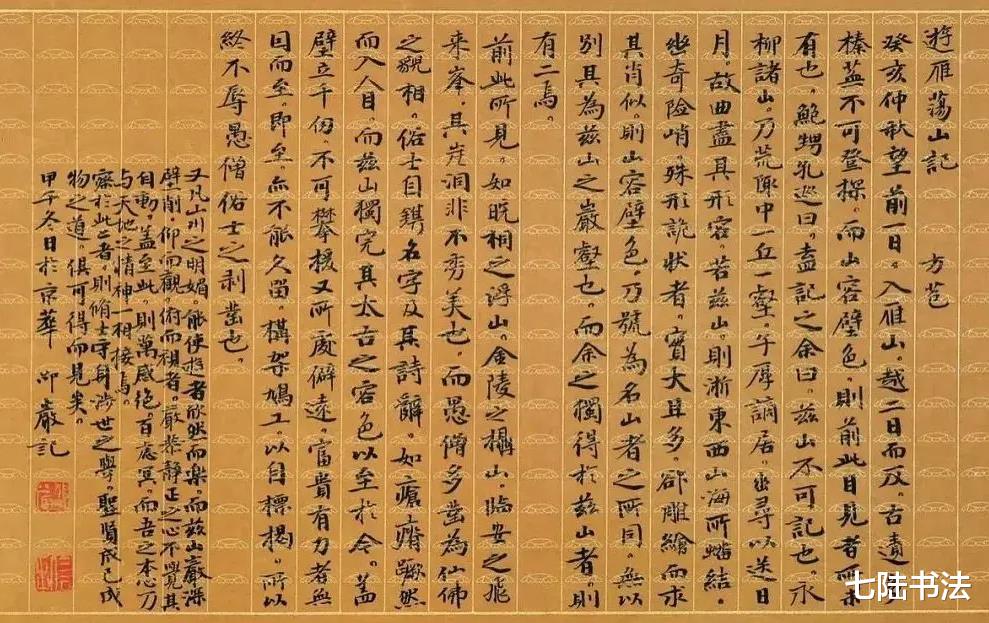 遊雁蕩山記　方苞
癸亥仲秋望前一日。入雁山。越二日而反。古蹟多
榛蕪不可登探。而山容壁色。則前此目見者所未
有也。鮑甥孔巡曰。盍記之。余曰。茲山不可記也。永
柳諸山。乃荒陬中一丘一壑。子厚謫居。幽尋以送日
月。故曲盡其形容。若茲山。則浙東西山海所蟠結。
幽奇險峭。殊形詭狀者。實大且多。欲雕繪而求
其肖似。則山容壁色。乃號為名山者之所同。無以
別其為茲山之巖壑也。而余之獨得於茲山者。則
有二焉。
前此所見。如皖桐之浮山。金陵之攝山。臨安之飛
来峯。其崖洞非不秀美也。而愚僧多鑿為仙佛
之貌相。俗士自鐫名字及其詩辭。如瘡痏蹶然
而入人目。而茲山獨完其太古之容色以至於今。蓋
壁立千仞。不可攀援又所處僻遠。富貴有力者無
因而至。即至。亦不能久留。構架鳩工以自標揭。所以
終不辱愚僧俗士之剥鑿也。
又凡山川之明媚。能使遊者欣然而樂。而茲山巖深
壁削。仰而觀。俯而視者。嚴恭靜正之心不覺其
自動。蓋至此。則萬感絕百慮冥。而吾之本心乃
与天地之精神一相接焉。
察於此二者。則脩士守身涉世之學。聖賢成己成
物之道。俱可得而見矣。
甲午冬日於京華　　巖記
七陆书法